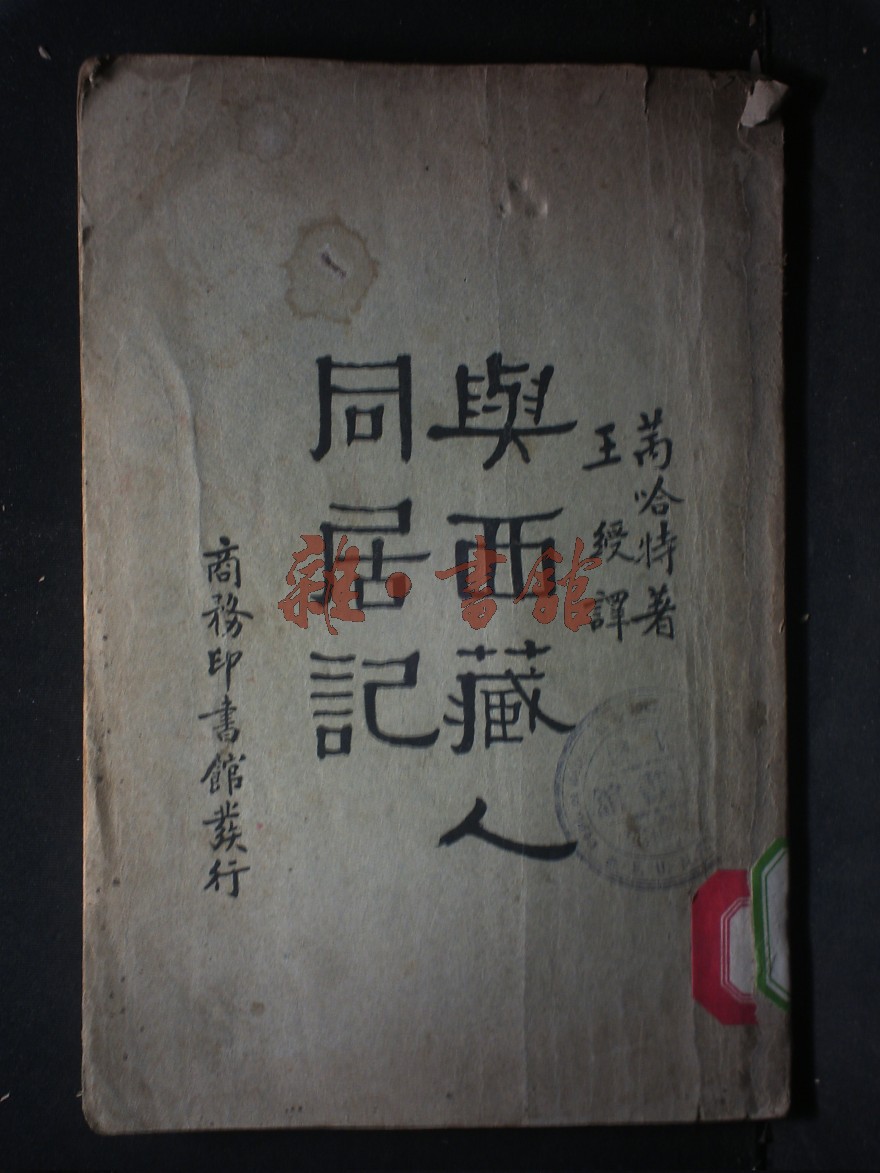 芮哈特著
王綬譯
與西藏人
同居記
商務印書館發行
雜·書館